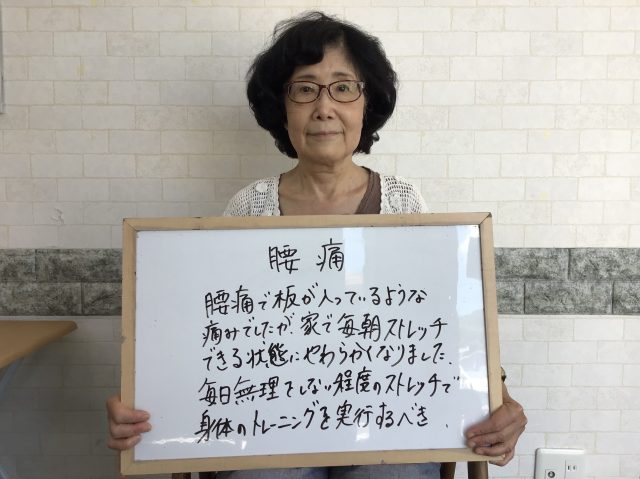 腰痛
腰痛で板が入っているような
痛みでしたが、家で毎朝ストレッチ
できる状態にやわらかくなりました。
毎日無理をしない程度のストレッチで
身体のトレーニングを実行するべき。